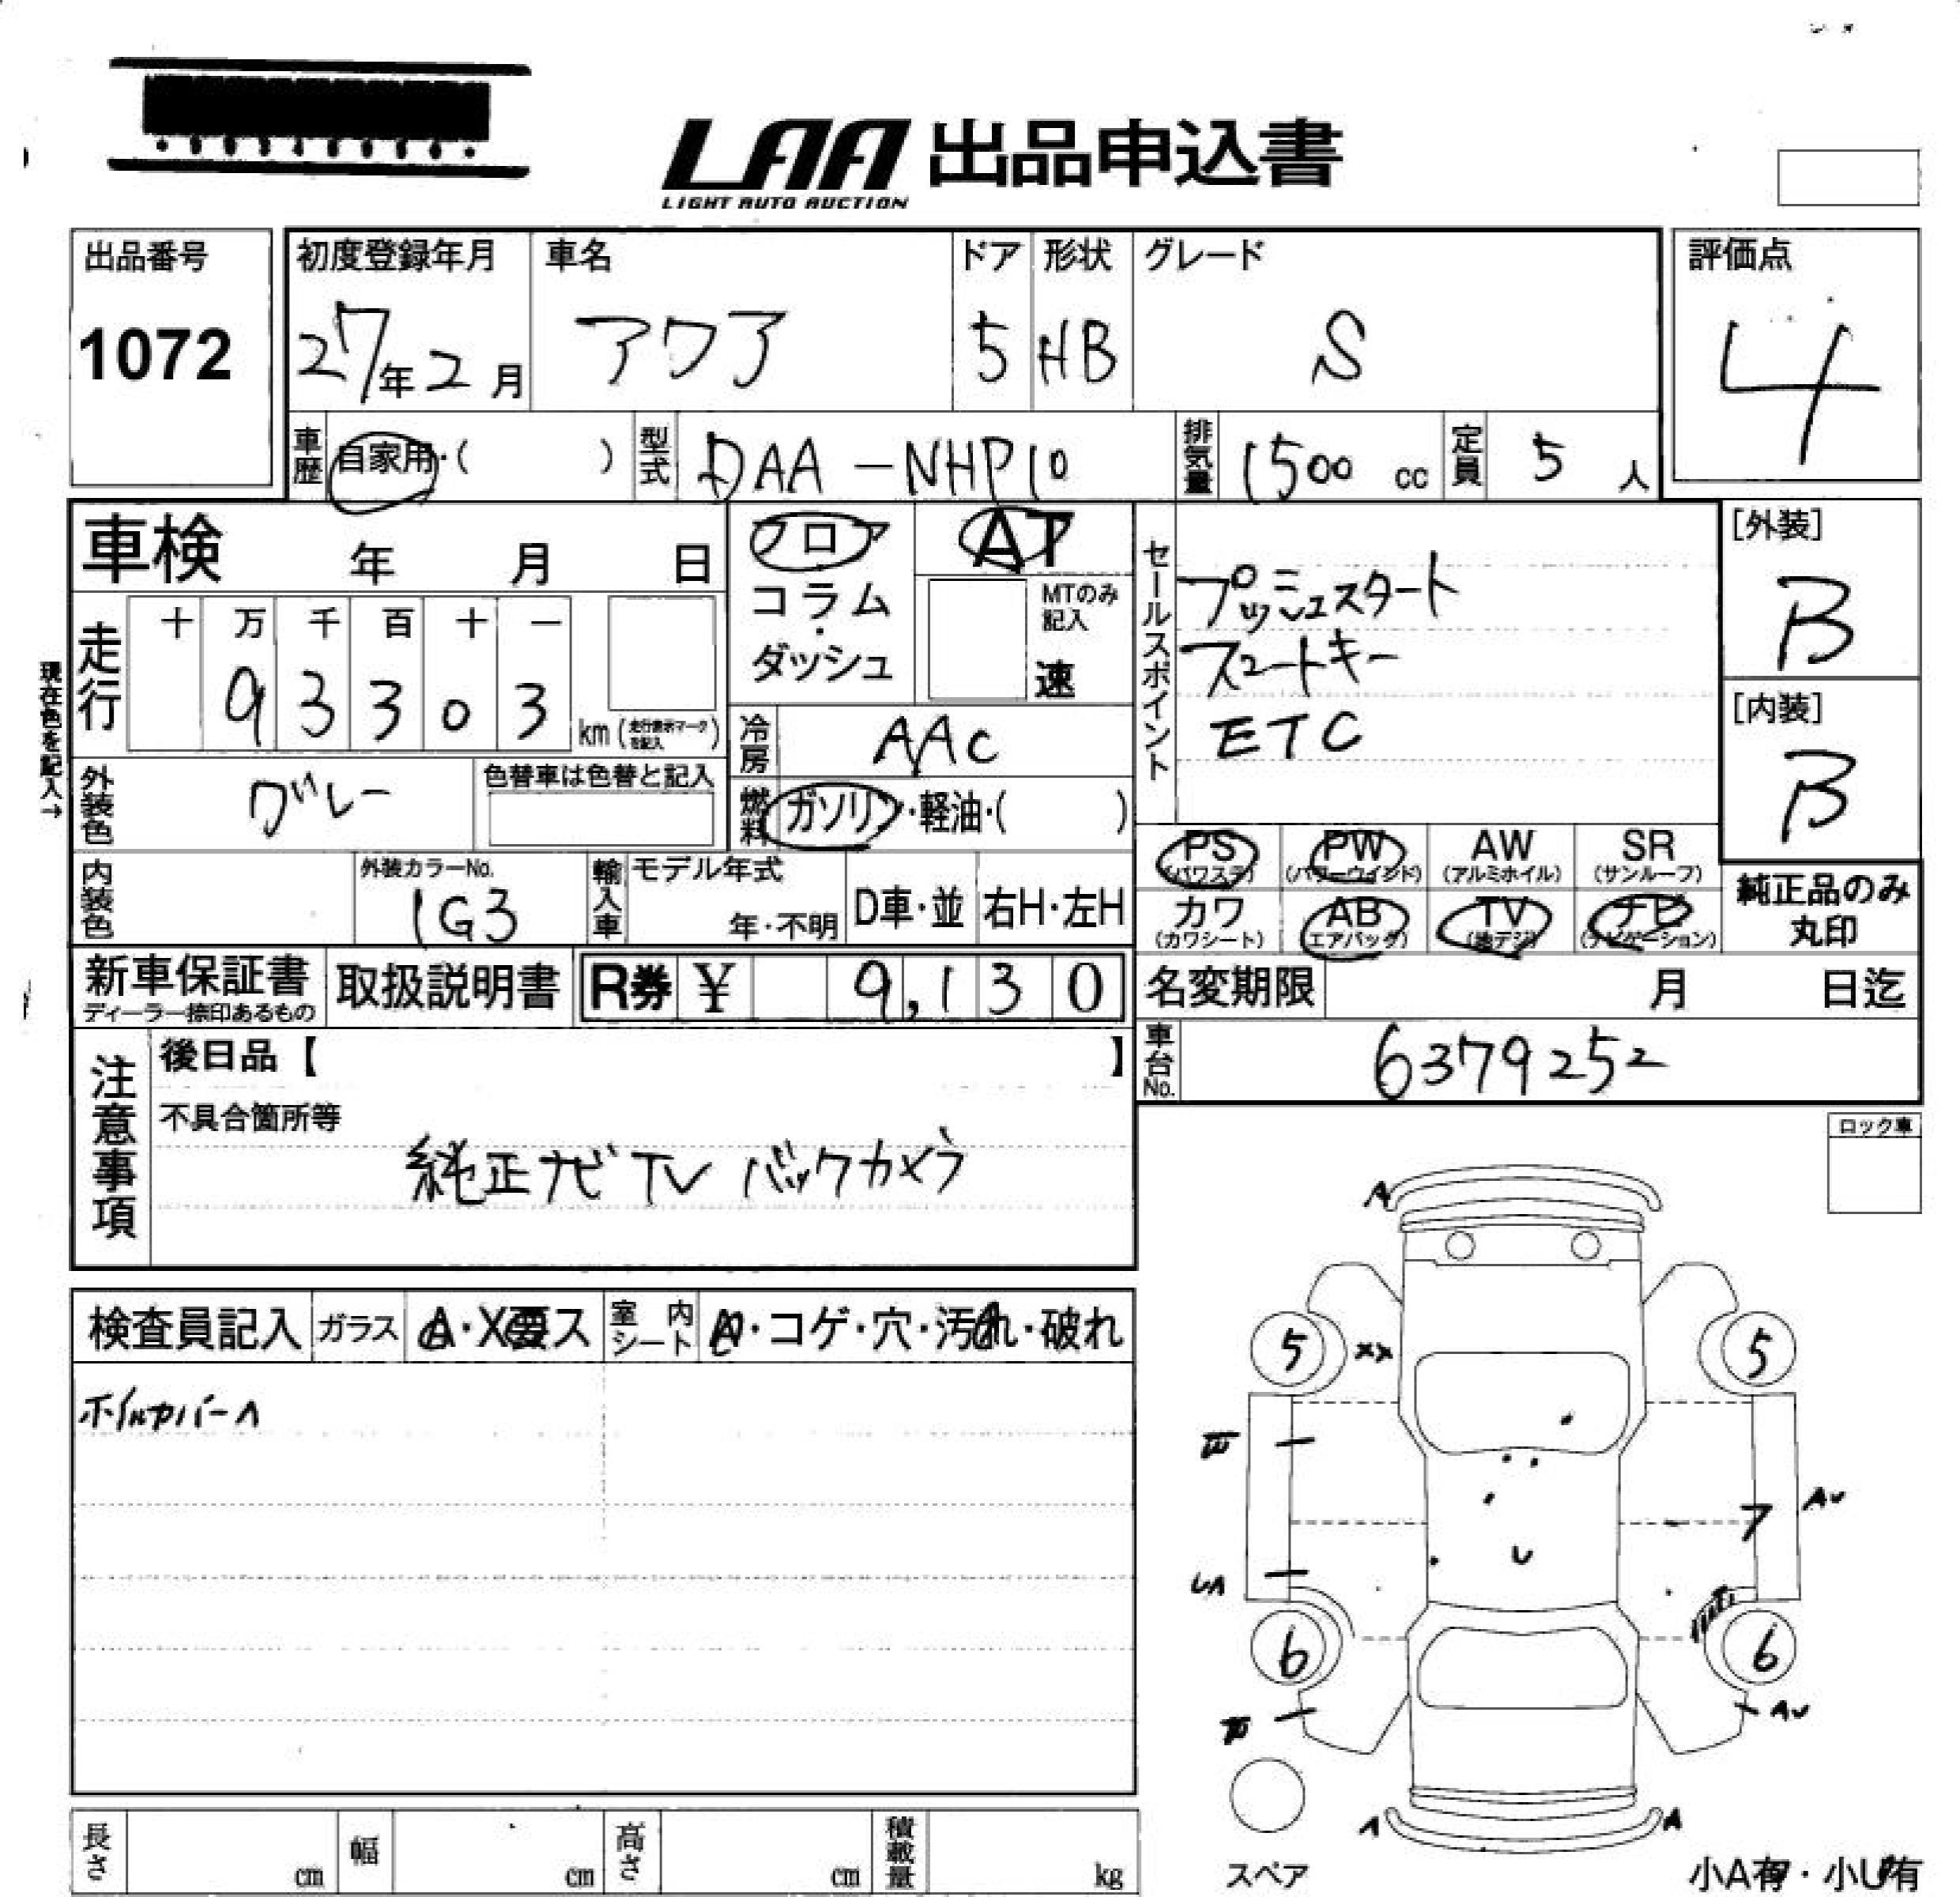 LAA 出品申込書
LIGHT AUTO AUCTION
出品番号
1072
初度登録年月
27年2月
車名
アクア
ドア
5
形状
HB
グレード
S
評価点
4
車歴
自家用・( )
型式
DAA-NHP10
排気量
1500 cc
定員
5 人
車検 年 月 日
フロア
コラム
・
ダッシュ
AT
MTのみ
記入
速
セールスポイント
プッシュスタート
スマートキー
ETC
[外装]
B
[内装]
B
現在色を記入→
走行
十 万 千 百 十 一
9 3 3 0 3
km (走行表示マークを記入)
冷房
AAC
外装色
グレー
色替車は色替と記入
燃料
ガソリン・軽油・( )
PS
(パワステ)
PW
(パワーウインド)
AW
(アルミホイル)
SR
(サンルーフ)
カワ
(カワシート)
AB
(エアバック)
TV
(地デジ)
ナビ
(ナビゲーション)
純正品のみ
丸印
内装色
外装カラーNo.
1G3
輸入車
モデル年式
年・不明
D車・並
右H・左H
新車保証書
ディーラー捺印あるもの
取扱説明書
R券 ¥ 9,130
名変期限 月 日迄
車台No.
6379252
注意事項
後日品【 】
不具合箇所等
純正ナビ TV バックカメラ
ロック車
検査員記入
ガラス
A・X要ス
室内
シート
・コゲ・穴・汚れ・破れ
ホイルカバーA
A
5
XX
5
AU
7
UA
6
6
AU
A
A
スペア
小A有・小U有
長さ cm
幅 cm
高さ cm
積載量 kg